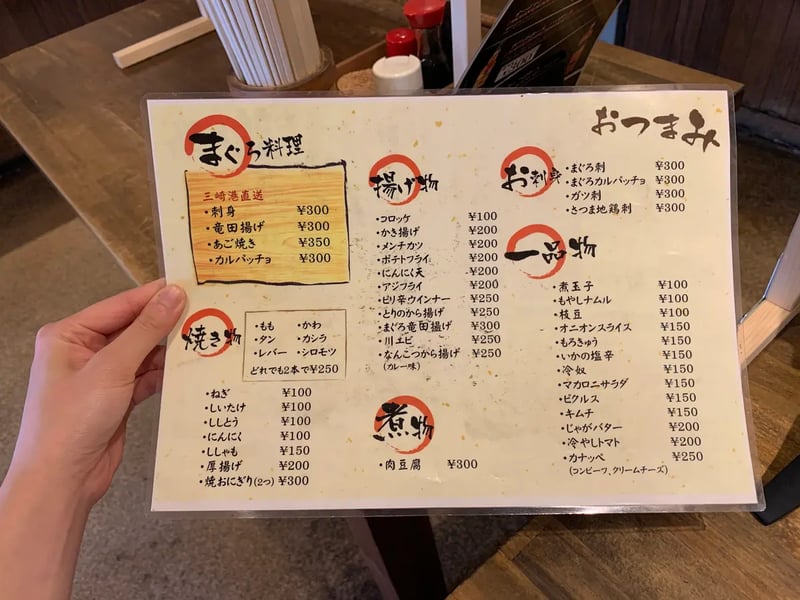 おつまみ
まぐろ料理
三崎港直送
・刺身 ¥300
・竜田揚げ ¥300
・あご焼き ¥350
・カルパッチョ ¥300
焼き物
・もも ・かわ
・タン ・カシラ
・レバー ・シロモツ
どれでも2本で¥250
・ねぎ ¥100
・しいたけ ¥100
・ししとう ¥100
・にんにく ¥100
・ししゃも ¥150
・厚揚げ ¥200
・焼おにぎり(2つ) ¥300
揚げ物
・コロッケ ¥100
・かき揚げ ¥200
・メンチカツ ¥200
・ポテトフライ ¥200
・にんにく天 ¥200
・アジフライ ¥200
・ピリ辛ウインナー ¥250
・とりのから揚げ ¥250
・まぐろ竜田揚げ ¥300
・川エビ ¥250
・なんこつから揚げ ¥250
(カレー味)
煮物
・肉豆腐 ¥300
お刺身
・まぐろ刺 ¥300
・まぐろカルパッチョ ¥300
・ガツ刺 ¥300
・さつま地鶏刺 ¥300
一品物
・煮玉子 ¥100
・もやしナムル ¥100
・枝豆 ¥100
・オニオンスライス ¥150
・もろきゅう ¥150
・いかの塩辛 ¥150
・冷奴 ¥150
・マカロニサラダ ¥150
・ピクルス ¥150
・キムチ ¥150
・じゃがバター ¥200
・冷やしトマト ¥200
・カナッペ ¥250
(コンビーフ、クリームチーズ)